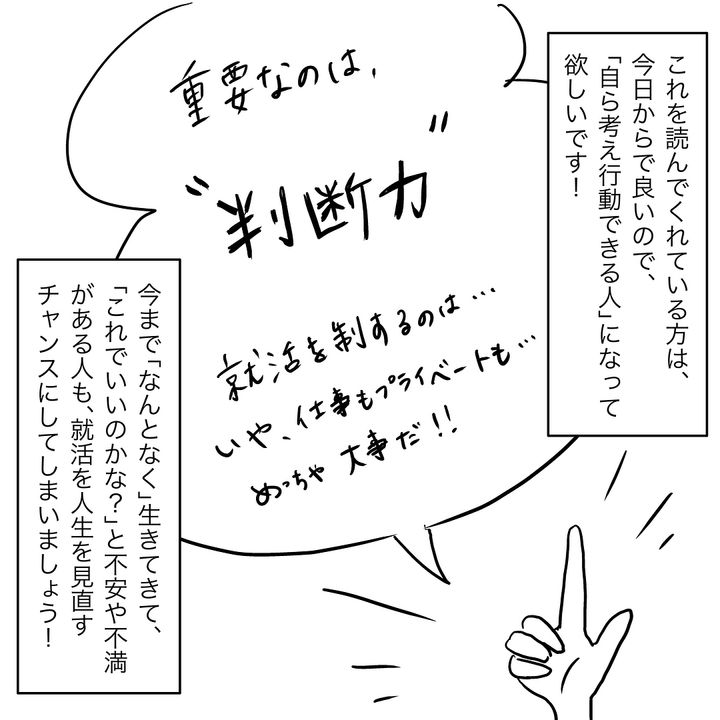 これを読んでくれている方は、
今日からで良いので、
「自ら考え行動できる人」になって
欲しいです！
重要なのは、
“判断力”
就活を制するのは…
いや、仕事もプライベートも…
めっちゃ大事だ!!
今まで「なんとなく」生きてきて、
「これでいいのかな？」と不安や不満
がある人も、就活を人生を見直す
チャンスにしてしまいましょう！